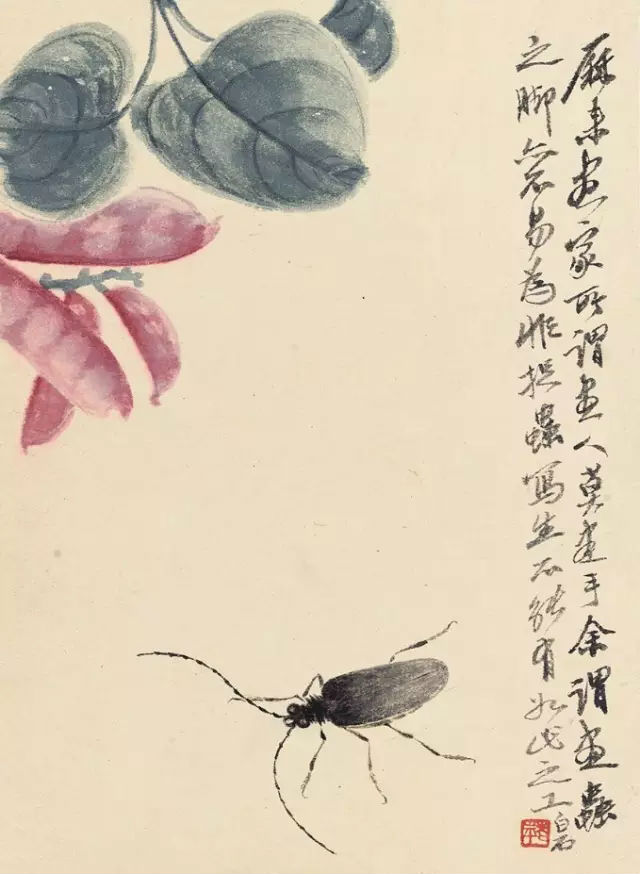 厤来畫家所謂畫人莫畫手余謂畫蟲
之脚亦不易為非捉蟲寫生不能有如此之工
白石